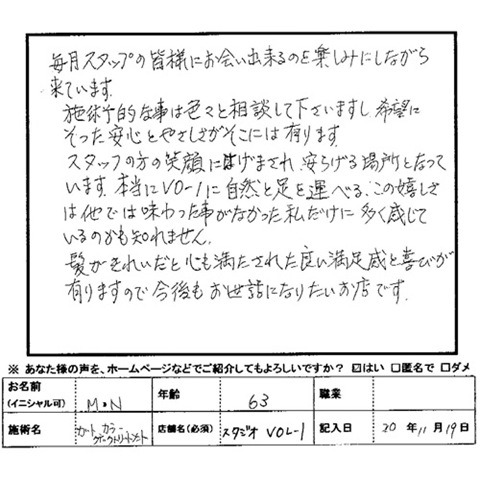 毎月スタップの皆様にお会い出来るのを楽しみにしながら
来ています.
施術的な事は色々と相談して下さいますし 希望に
そった安心とやさしさがそこには有ります
スタッフの方の笑顔にはげまされ、安らげる場所となって
います. 本当にVO-1に自然と足を運べる. この嬉しさ
は他では味わった事がなかった私だけに 多く感じて
いるのかも知れません.
髪がきれいだと心も満たされた良い満足感と喜びが
有りますので今後もお世話になりたいお店です.
※ あなた様の声を、ホームページなどでご紹介してもよろしいですか？ ☑はい □匿名で □ダメ
お名前 (イニシャル可) M・N 年齢 63 職業
施術名 カート カラー 店舗名(必須) スタジオ VOL-1 記入日 20年11月19日